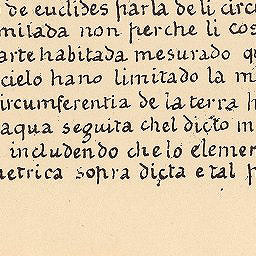 de euclides parla de li circu
milada non perche li cos
arte habitada mesurado q
cielo hano limitado la m
ircumferentia de la terra h
aqua seguita chel dicto m
includendo che lo elemen
etrica sopra dicta e tal p